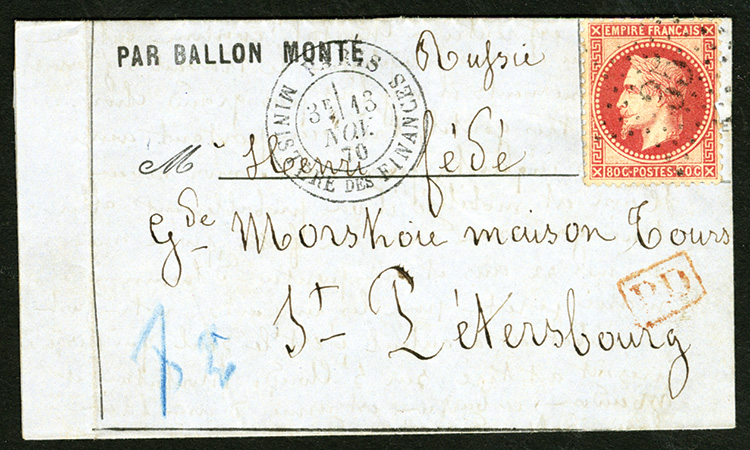 PAR BALLON MONTÉ
Russie
PARIS
MINISTÈRE DES FINANCES
3E 13
NOV.
70
EMPIRE FRANÇAIS
80C-POSTES-80C
Mr Henri Fédé
Gde Morskoie maison Tours
St Pétersbourg
P.D.